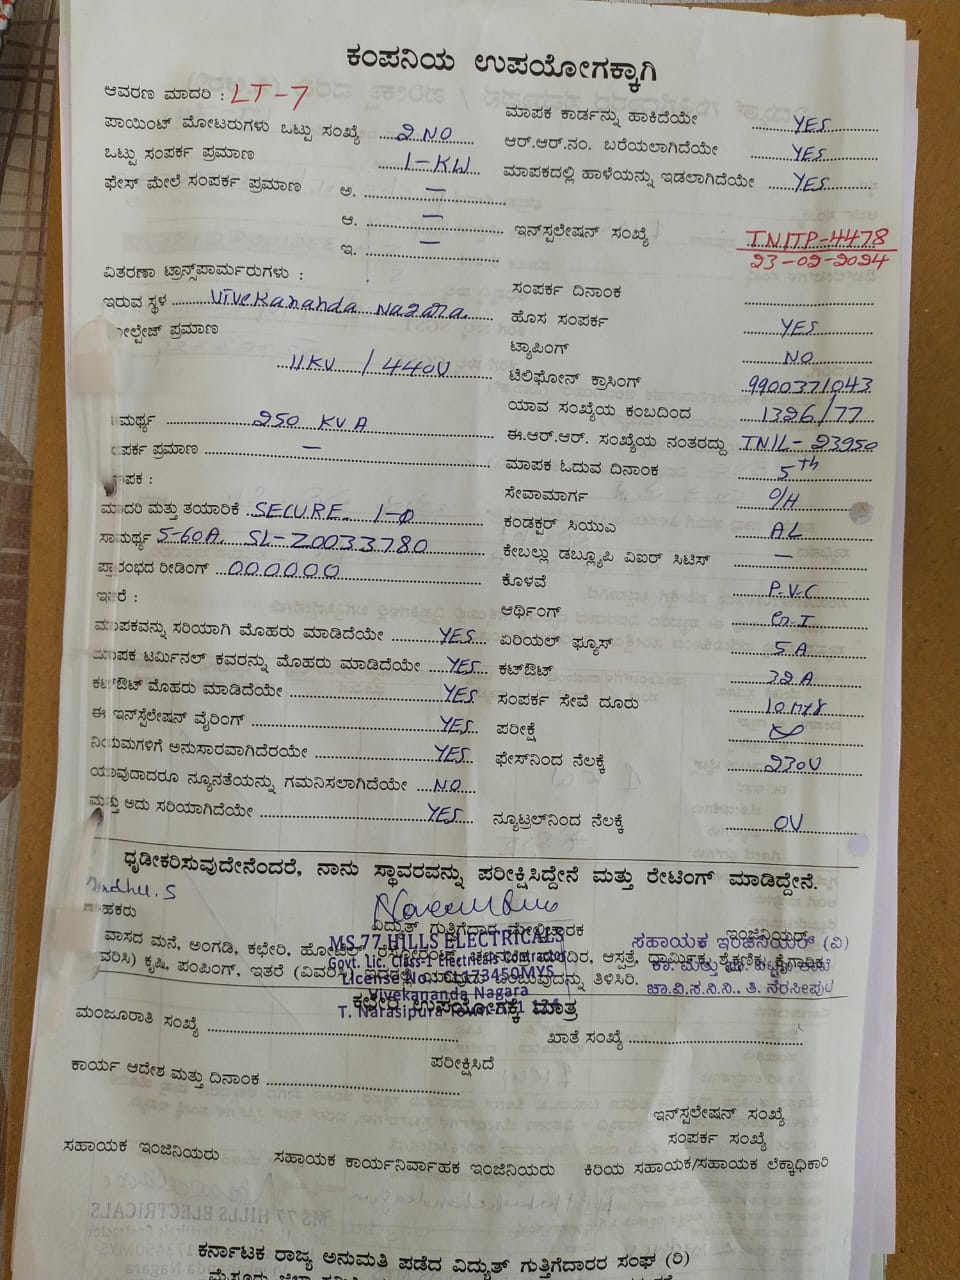 ಕಂಪನಿಯ ಉಪಯೋಗಕ್ಕಾಗಿ
ಆವರಣ ಮಾದರಿ : LT-7
ಪಾಯಿಂಟ್ ಮೋಟರುಗಳು ಒಟ್ಟು ಸಂಖ್ಯೆ 2 NO
ಒಟ್ಟು ಸಂಪರ್ಕ ಪ್ರಮಾಣ 1-KW
ಫೇಸ್ ಮೇಲೆ ಸಂಪರ್ಕ ಪ್ರಮಾಣ ಅ. —
ಆ. —
ಇ. —
ವಿತರಣಾ ಟ್ರಾನ್ಸ್‌ಪಾರ್ಮರುಗಳು :
ಇರುವ ಸ್ಥಳ Vivekananda Nagara
ವೋಲ್ಟೇಜ್ ಪ್ರಮಾಣ
11KV / 440V
ಮರ್ಥ್ಯ 250 KVA
ಪರ್ಕ ಪ್ರಮಾಣ —
ಪಕ :
ಮಾದರಿ ಮತ್ತು ತಯಾರಿಕೆ SECURE. 1-Φ
ಸಾಮರ್ಥ್ಯ 5-60A. SL-Z0033780
ಪ್ರಾರಂಭದ ರೀಡಿಂಗ್ 000000
ಇತರೆ :
ಮಾಪಕವನ್ನು ಸರಿಯಾಗಿ ಮೊಹರು ಮಾಡಿದೆಯೇ YES
ಮಾಪಕ ಟರ್ಮಿನಲ್ ಕವರನ್ನು ಮೊಹರು ಮಾಡಿದೆಯೇ YES
ಕಟ್‌ಔಟ್ ಮೊಹರು ಮಾಡಿದೆಯೇ YES
ಈ ಇನ್‌ಸ್ಟೆಲೇಷನ್ ವೈರಿಂಗ್ YES
ನಿಯಮಗಳಿಗೆ ಅನುಸಾರವಾಗಿದೆರಯೇ YES
ಯಾವುದಾದರೂ ನ್ಯೂನತೆಯನ್ನು ಗಮನಿಸಲಾಗಿದೆಯೇ NO
ಮತ್ತು ಅದು ಸರಿಯಾಗಿದೆಯೇ YES
ಮಾಪಕ ಕಾರ್ಡನ್ನು ಹಾಕಿದೆಯೇ YES
ಆರ್.ಆರ್.ನಂ. ಬರೆಯಲಾಗಿದೆಯೇ YES
ಮಾಪಕದಲ್ಲಿ ಹಾಳೆಯನ್ನು ಇಡಲಾಗಿದೆಯೇ YES
ಇನ್‌ಸ್ಪಲೇಷನ್ ಸಂಖ್ಯೆ TNITP-4478
23-02-2024
ಸಂಪರ್ಕ ದಿನಾಂಕ
ಹೊಸ ಸಂಪರ್ಕ YES
ಟ್ಯಾಪಿಂಗ್ NO
ಟೆಲಿಫೋನ್ ಕ್ರಾಸಿಂಗ್ 9900371043
ಯಾವ ಸಂಖ್ಯೆಯ ಕಂಬದಿಂದ 1326/77
ಈ.ಆರ್.ಆರ್. ಸಂಖ್ಯೆಯ ನಂತರದ್ದು TNIL-23950
ಮಾಪಕ ಓದುವ ದಿನಾಂಕ 5th
ಸೇವಾಮಾರ್ಗ O/H
ಕಂಡಕ್ಟರ್ ಸಿಯುಎ AL
ಕೇಬಲ್ಲು ಡಬ್ಲ್ಯೂಪಿ ವಿಐರ್ ಸಿಟಿಸ್ —
ಕೊಳವೆ P.V.C
ಆರ್ಥಿಂಗ್ G.I
ಏರಿಯಲ್ ಫ್ಯೂಸ್ 5A
ಕಟ್‌ಔಟ್ 32A
ಸಂಪರ್ಕ ಸೇವೆ ದೂರು 10 mtr
ಪರೀಕ್ಷೆ
ಫೇಸ್‌ನಿಂದ ನೆಲಕ್ಕೆ 230V
ನ್ಯೂಟ್ರಲ್‌ನಿಂದ ನೆಲಕ್ಕೆ 0V
ಧೃಡೀಕರಿಸುವುದೇನೆಂದರೆ, ನಾನು ಸ್ಥಾವರವನ್ನು ಪರೀಕ್ಷಿಸಿದ್ದೇನೆ ಮತ್ತು ರೇಟಿಂಗ್ ಮಾಡಿದ್ದೇನೆ.
ಗ್ರಾಹಕರು ವಿದ್ಯುತ್ ಗುತ್ತಿಗೆದಾರ ಮೇಲ್ವಿಚಾರಕ ಇಂಜಿನಿಯರ್
MS.77 HILLS ELECTRICALS
Govt. Lic. Class-1 Electricals Contractor
License No. 173450MYS
Vivekananda Nagara
T. Narasipura Town
ಸಹಾಯಕ ಇಂಜಿನಿಯರ್ (ವಿ)
ಚಾ.ವಿ.ಸ.ನಿ.ನಿ., ತಿ. ನರಸೀಪುರ
ವಾಸದ ಮನೆ, ಅಂಗಡಿ, ಕಛೇರಿ, ಮಂದಿರ, ಆಸ್ಪತ್ರೆ, ಧಾರ್ಮಿಕ, ಶೈಕ್ಷಣಿಕ, ಕೈಗಾರಿಕ,
ವರಿಸಿ) ಕೃಷಿ, ಪಂಪಿಂಗ್, ಇತರೆ (ವಿವರಿಸಿ) ಎಂಬುವುದನ್ನು ತಿಳಿಸಿರಿ.
ಕಛೇರಿ ಉಪಯೋಗಕ್ಕೆ ಮಾತ್ರ
ಮಂಜೂರಾತಿ ಸಂಖ್ಯೆ ಖಾತೆ ಸಂಖ್ಯೆ
ಪರೀಕ್ಷಿಸಿದೆ
ಕಾರ್ಯ ಆದೇಶ ಮತ್ತು ದಿನಾಂಕ
ಇನ್‌ಸ್ಪಲೇಷನ್ ಸಂಖ್ಯೆ
ಸಂಪರ್ಕ ಸಂಖ್ಯೆ
ಸಹಾಯಕ ಇಂಜಿನಿಯರು ಸಹಾಯಕ ಕಾರ್ಯನಿರ್ವಾಹಕ ಇಂಜಿನಿಯರು ಕಿರಿಯ ಸಹಾಯಕ/ಸಹಾಯಕ ಲೆಕ್ಕಾಧಿಕಾರಿ
ಕರ್ನಾಟಕ ರಾಜ್ಯ ಅನುಮತಿ ಪಡೆದ ವಿದ್ಯುತ್ ಗುತ್ತಿಗೆದಾರರ ಸಂಘ (ರಿ)